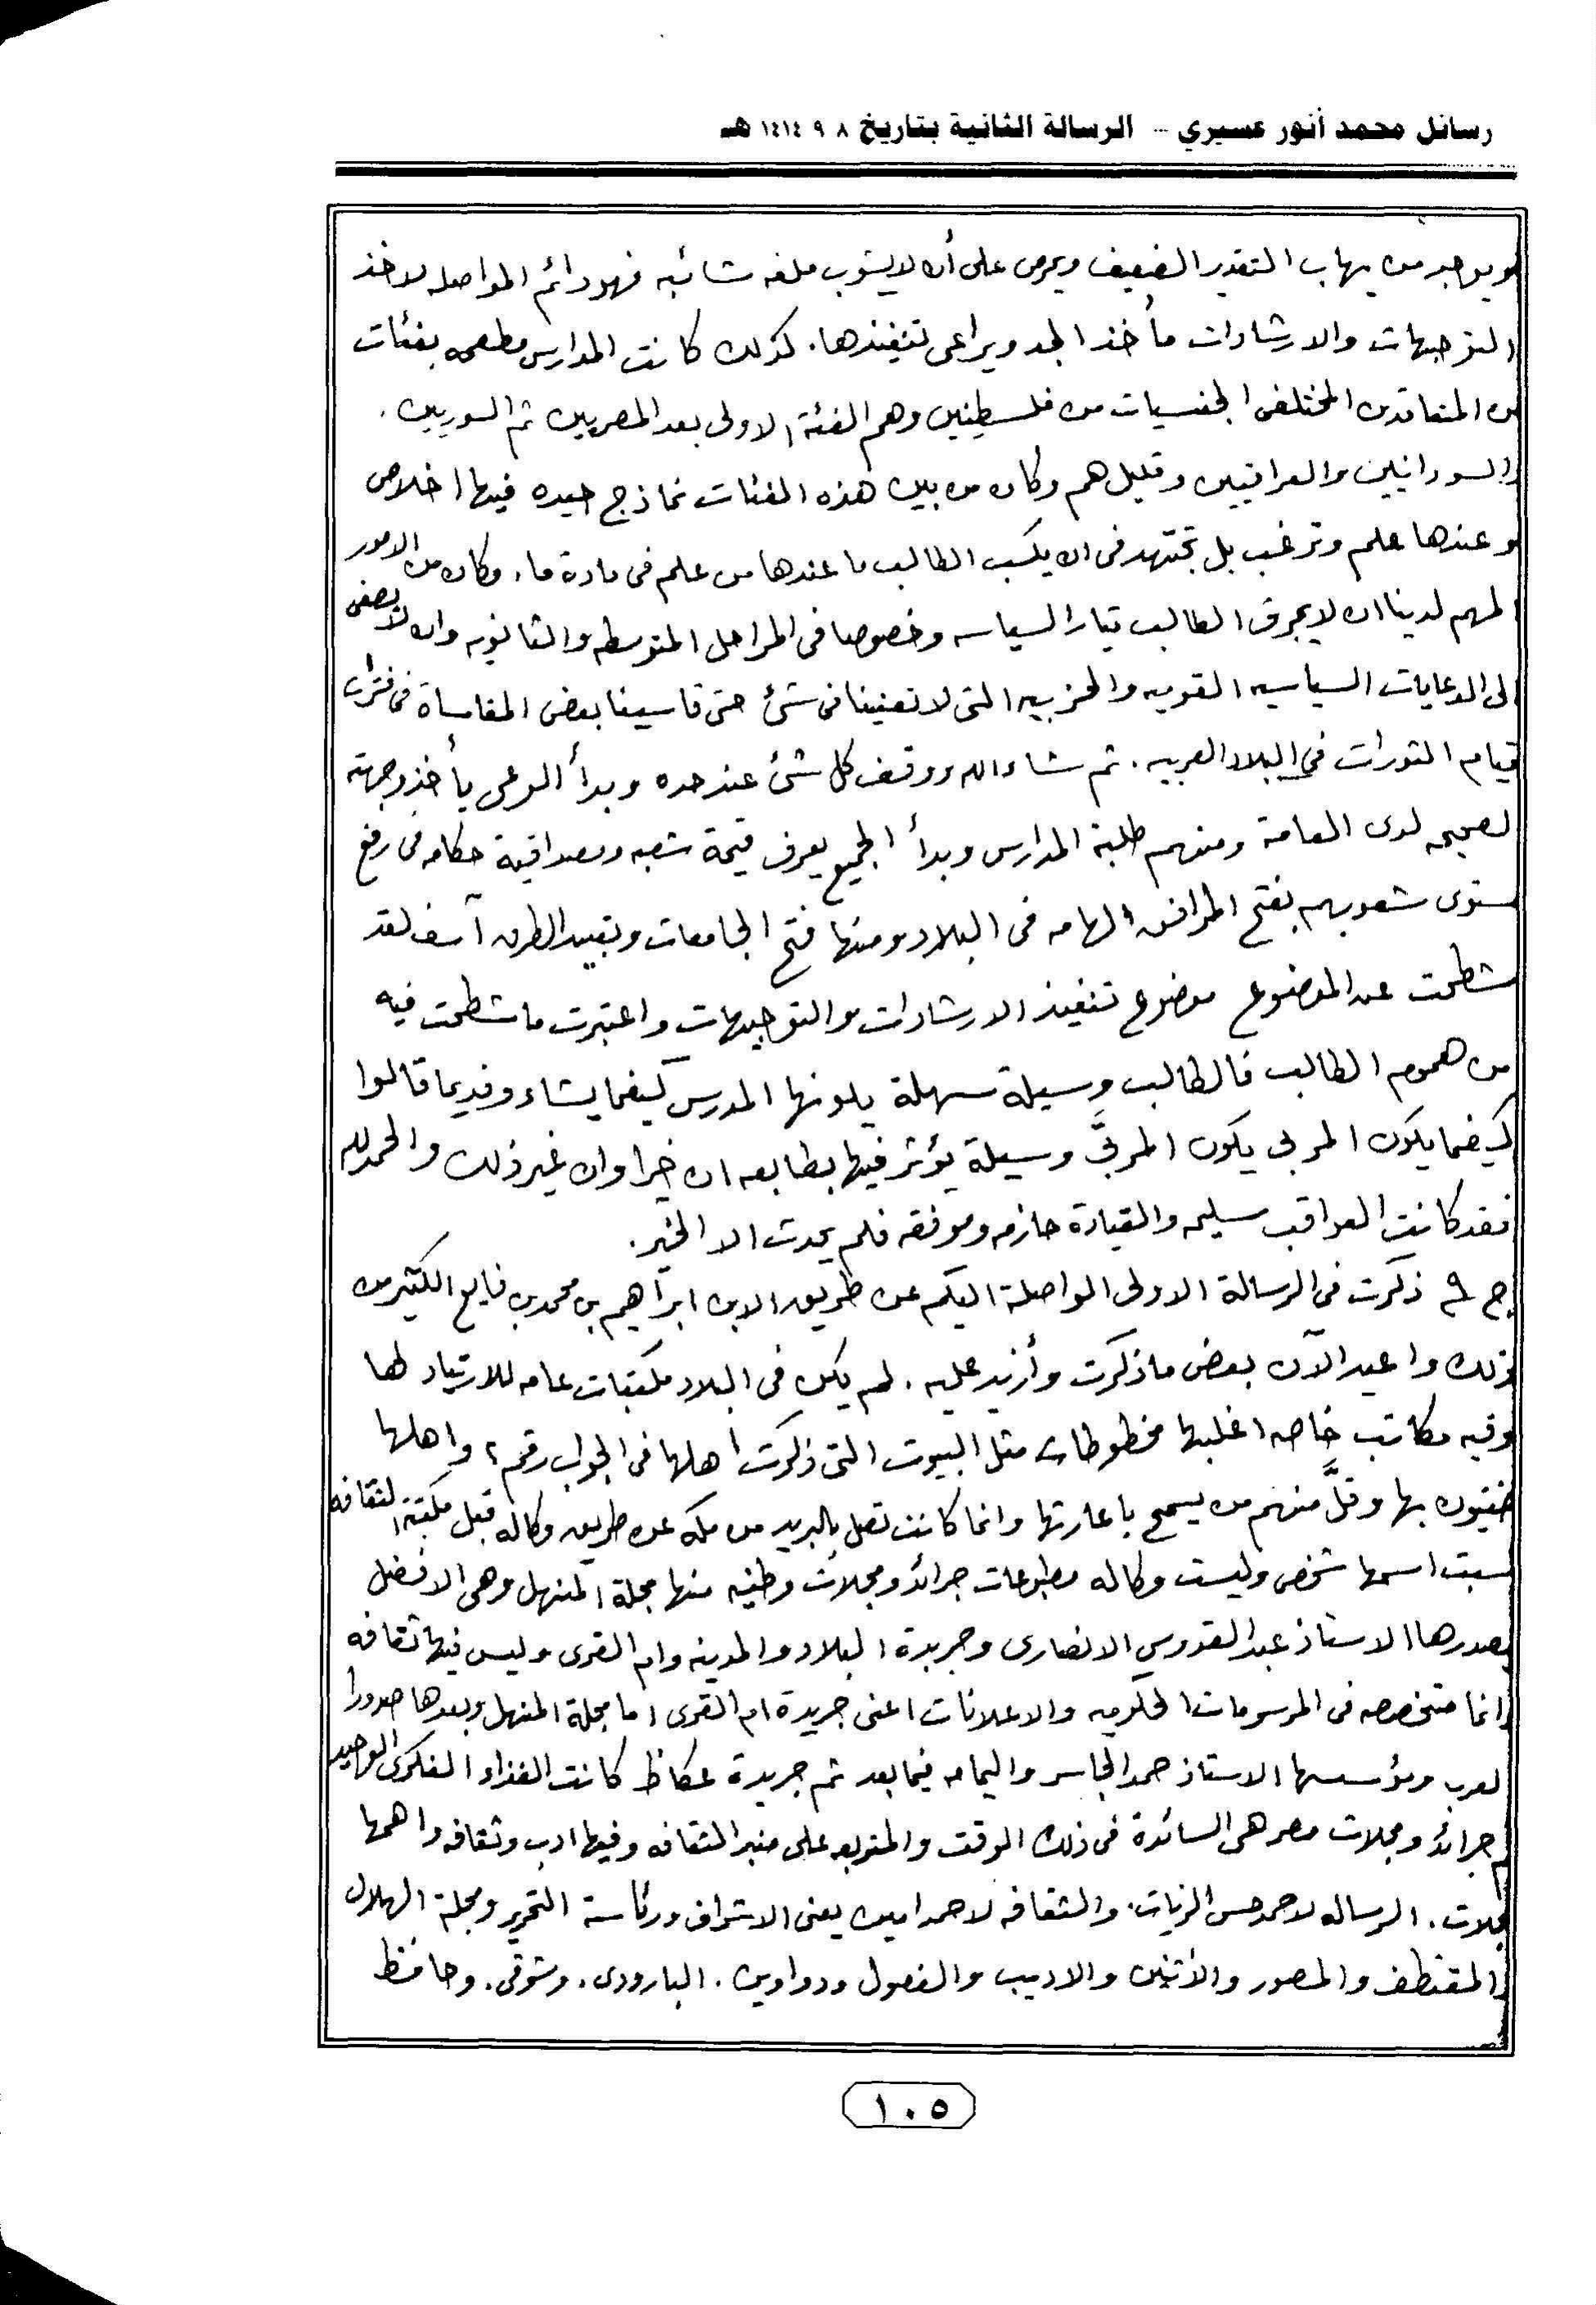 رسائل محمد أنور عسيري - الرسالة الثانية بتاريخ ٨ ٩ ١٤١٤ هـ
ويوجد من يهاب التقدير الضعيف ويحرص على أن لا يشوب ملفه شائبه فهو دائم المواصله لاخذ
التوجيهات والارشادات مأخذ الجد ويراعى تنفيذها. كذلك كانت المدارس مطعمه بفئات
من المتعاقدين المختلفى الجنسيات من فلسطينين وهم الفئة الاولى بعد المصريين ثم السوريين.
والسودانيين والعراقيين وقليل هم وكان من بين هذه الفئات نماذج جيده فيها اخلاص
وعندها علم وترغب بل تجتهد فى ان يكسب الطالب ما عندها من علم فى مادة ما. وكان من الامور
المهم لدينا ان لا يجرف الطالب تيار السياسه وخصوصا فى المراحل المتوسطه والثانويه وان لا يصغى
الى الدعايات السياسيه القوميه والحزبيه التى لا تعنينا فى شئ حتى قاسينا بعض المقاساة فى فترات
قيام الثورات فى البلاد العربيه. ثم شاء الله ووقف كل شئ عند حده وبدأ الوعى يأخذ وجهته
لصحيحه لدى العامة ومنهم طلبة المدارس وبدأ الجميع يعرف قيمة شعبه ومصداقية حكامه فى رفع
مستوى شعوبهم بفتح المرافق الهامه فى البلاد ومنها فتح الجامعات وتعبيد الطرق آسف لقد
شطحت عن الموضوع موضوع تنفيذ الارشادات والتوجيهات واعتبرت ما شطحت فيه
من هموم الطالب فالطالب وسيلة سهلة يلونها المدرس كيفما يشاء وقديما قالوا
كيفما يكون المربى يكون المربَّى وسيلة يؤثر فيها بطابعه ان خيرا وان غير ذلك والحمد لله
فقد كانت العواقب سليمه والقيادة حازمه وموفقه فلم يحدث الا الخير.
ج ٩ ذكرت فى الرسالة الاولى الواصلة اليكم عن طريق الابن ابراهيم بن محمد بن فايع الكثير من
ذلك واعيد الآن بعض ما ذكرت وأزيد عليه. لم يكن فى البلاد مكتبات عامه للارتياد لها
وفيه مكاتب خاصه اغلبها مخطوطات مثل البيوت التى ذكرت اهلها فى الجواب رقم ٢ واهلها
ضنينون بها وقلَّ منهم من يسمح باعارتها وانما كانت تصل بالبريد من مكه عن طريق وكاله قبل مكتبة الثقافه
نسيت اسمها شخص وليست وكاله مطبوعات جرائد ومجلات وطنيه منها مجلة المنهل وهى الافضل
يصدرها الاستاذ عبد القدوس الانصارى وجريدة البلاد والمدينه وام القرى وليس فيها ثقافه
وانما متخصصه فى المرسومات الحكوميه والاعلانات اعنى جريدة ام القرى اما مجلة المنهل وبعدها صدورا
لعرب ومؤسسها الاستاذ حمد الجاسر واليمامه فيما بعد ثم جريدة عكاظ كانت الغذاء الفكرى الوحيد
ثم جرائد ومجلات مصر هى السائدة فى ذلك الوقت والمتربعه على منبر الثقافه وفيها ادب وثقافه واهمها
مجلات. الرساله لاحمد حسن الزيات. والثقافه لاحمد امين يعنى الاشراف ورئاسة التحرير ومجلة الهلال
والمقتطف والمصور والاثنين والاديب والفصول ودواوين. البارودى. وشوقى. وحافظ
١٠٥